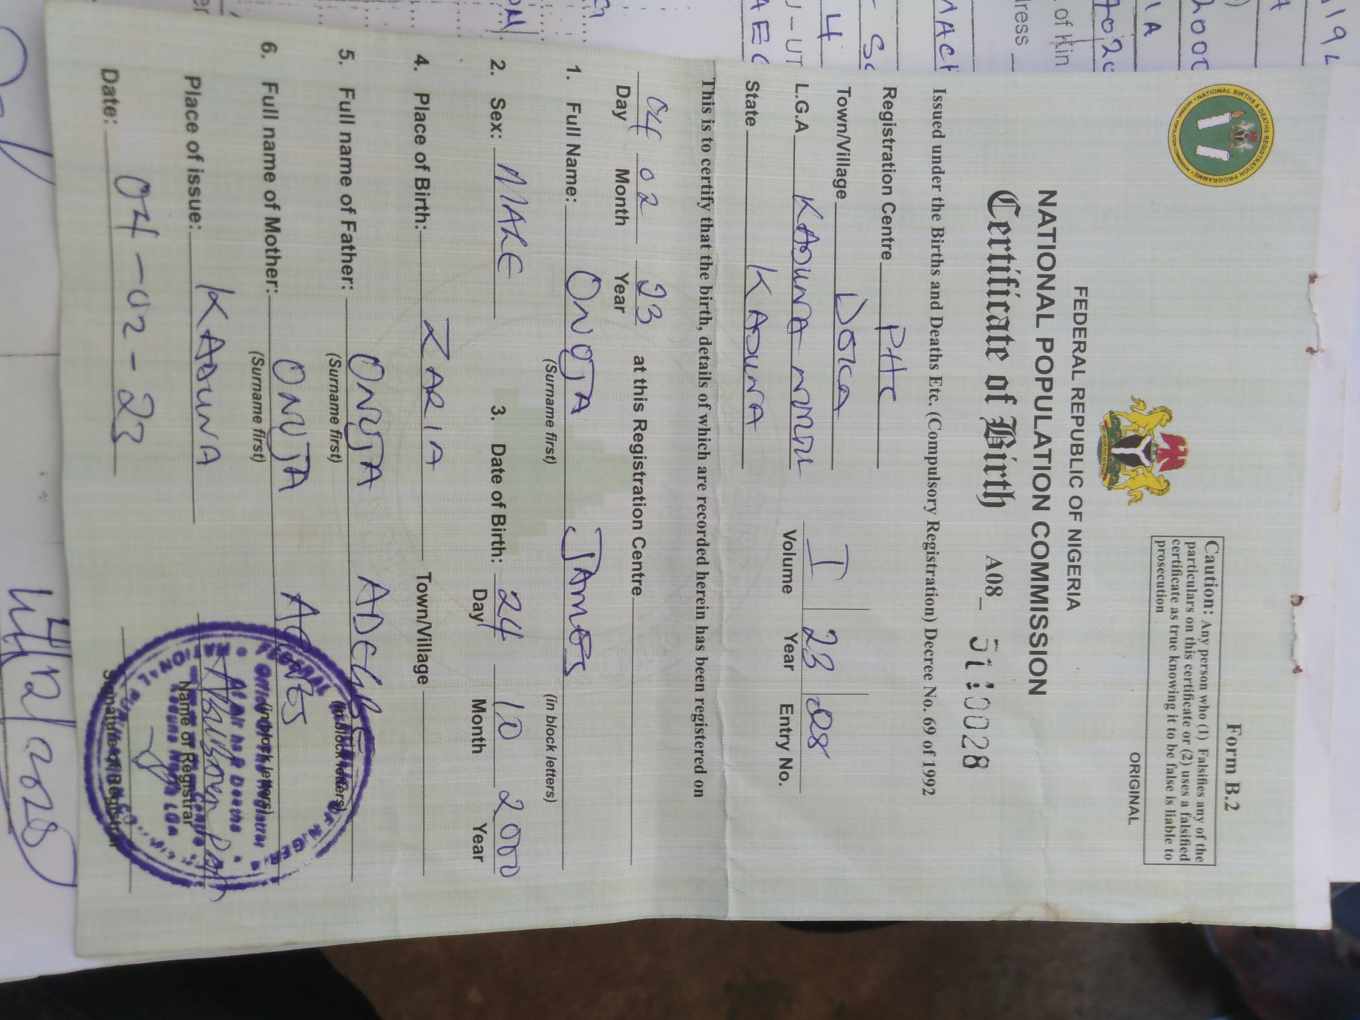 Form B.2
Caution: Any person who (1) Falsifies any of the
particulars on this certificate or (2) uses a falsified
certificate as true knowing it to be false is liable to
prosecution
ORIGINAL
FEDERAL REPUBLIC OF NIGERIA
NATIONAL POPULATION COMMISSION
Certificate of Birth A08_ 5110028
Issued under the Births and Deaths Etc. (Compulsory Registration) Decree No. 69 of 1992
Registration Centre PHC
Town/Village DOKA
L.G.A KADUNA NORTH I 23 08
Volume Year Entry No.
State KADUNA
This is to certify that the birth, details of which are recorded herein has been registered on
04 02 23 at this Registration Centre
Day Month Year
1. Full Name: ONOJA JAMES
(Surname first) (in block letters)
2. Sex: MALE 3. Date of Birth: 24 10 2000
Day Month Year
4. Place of Birth: ZARIA Town/Village
5. Full name of Father: ONOJA ADEGBE
(Surname first) (in block letters)
6. Full name of Mother: ONOJA AGNES
(Surname first) (in block letters)
Place of issue: KADUNA
Name of Registrar
Date: 04-02-23
Signature of Registrar